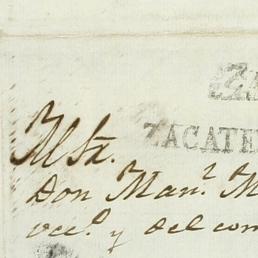 ZACATE
Al Sr.
Don Man.l M
vec.o y del com